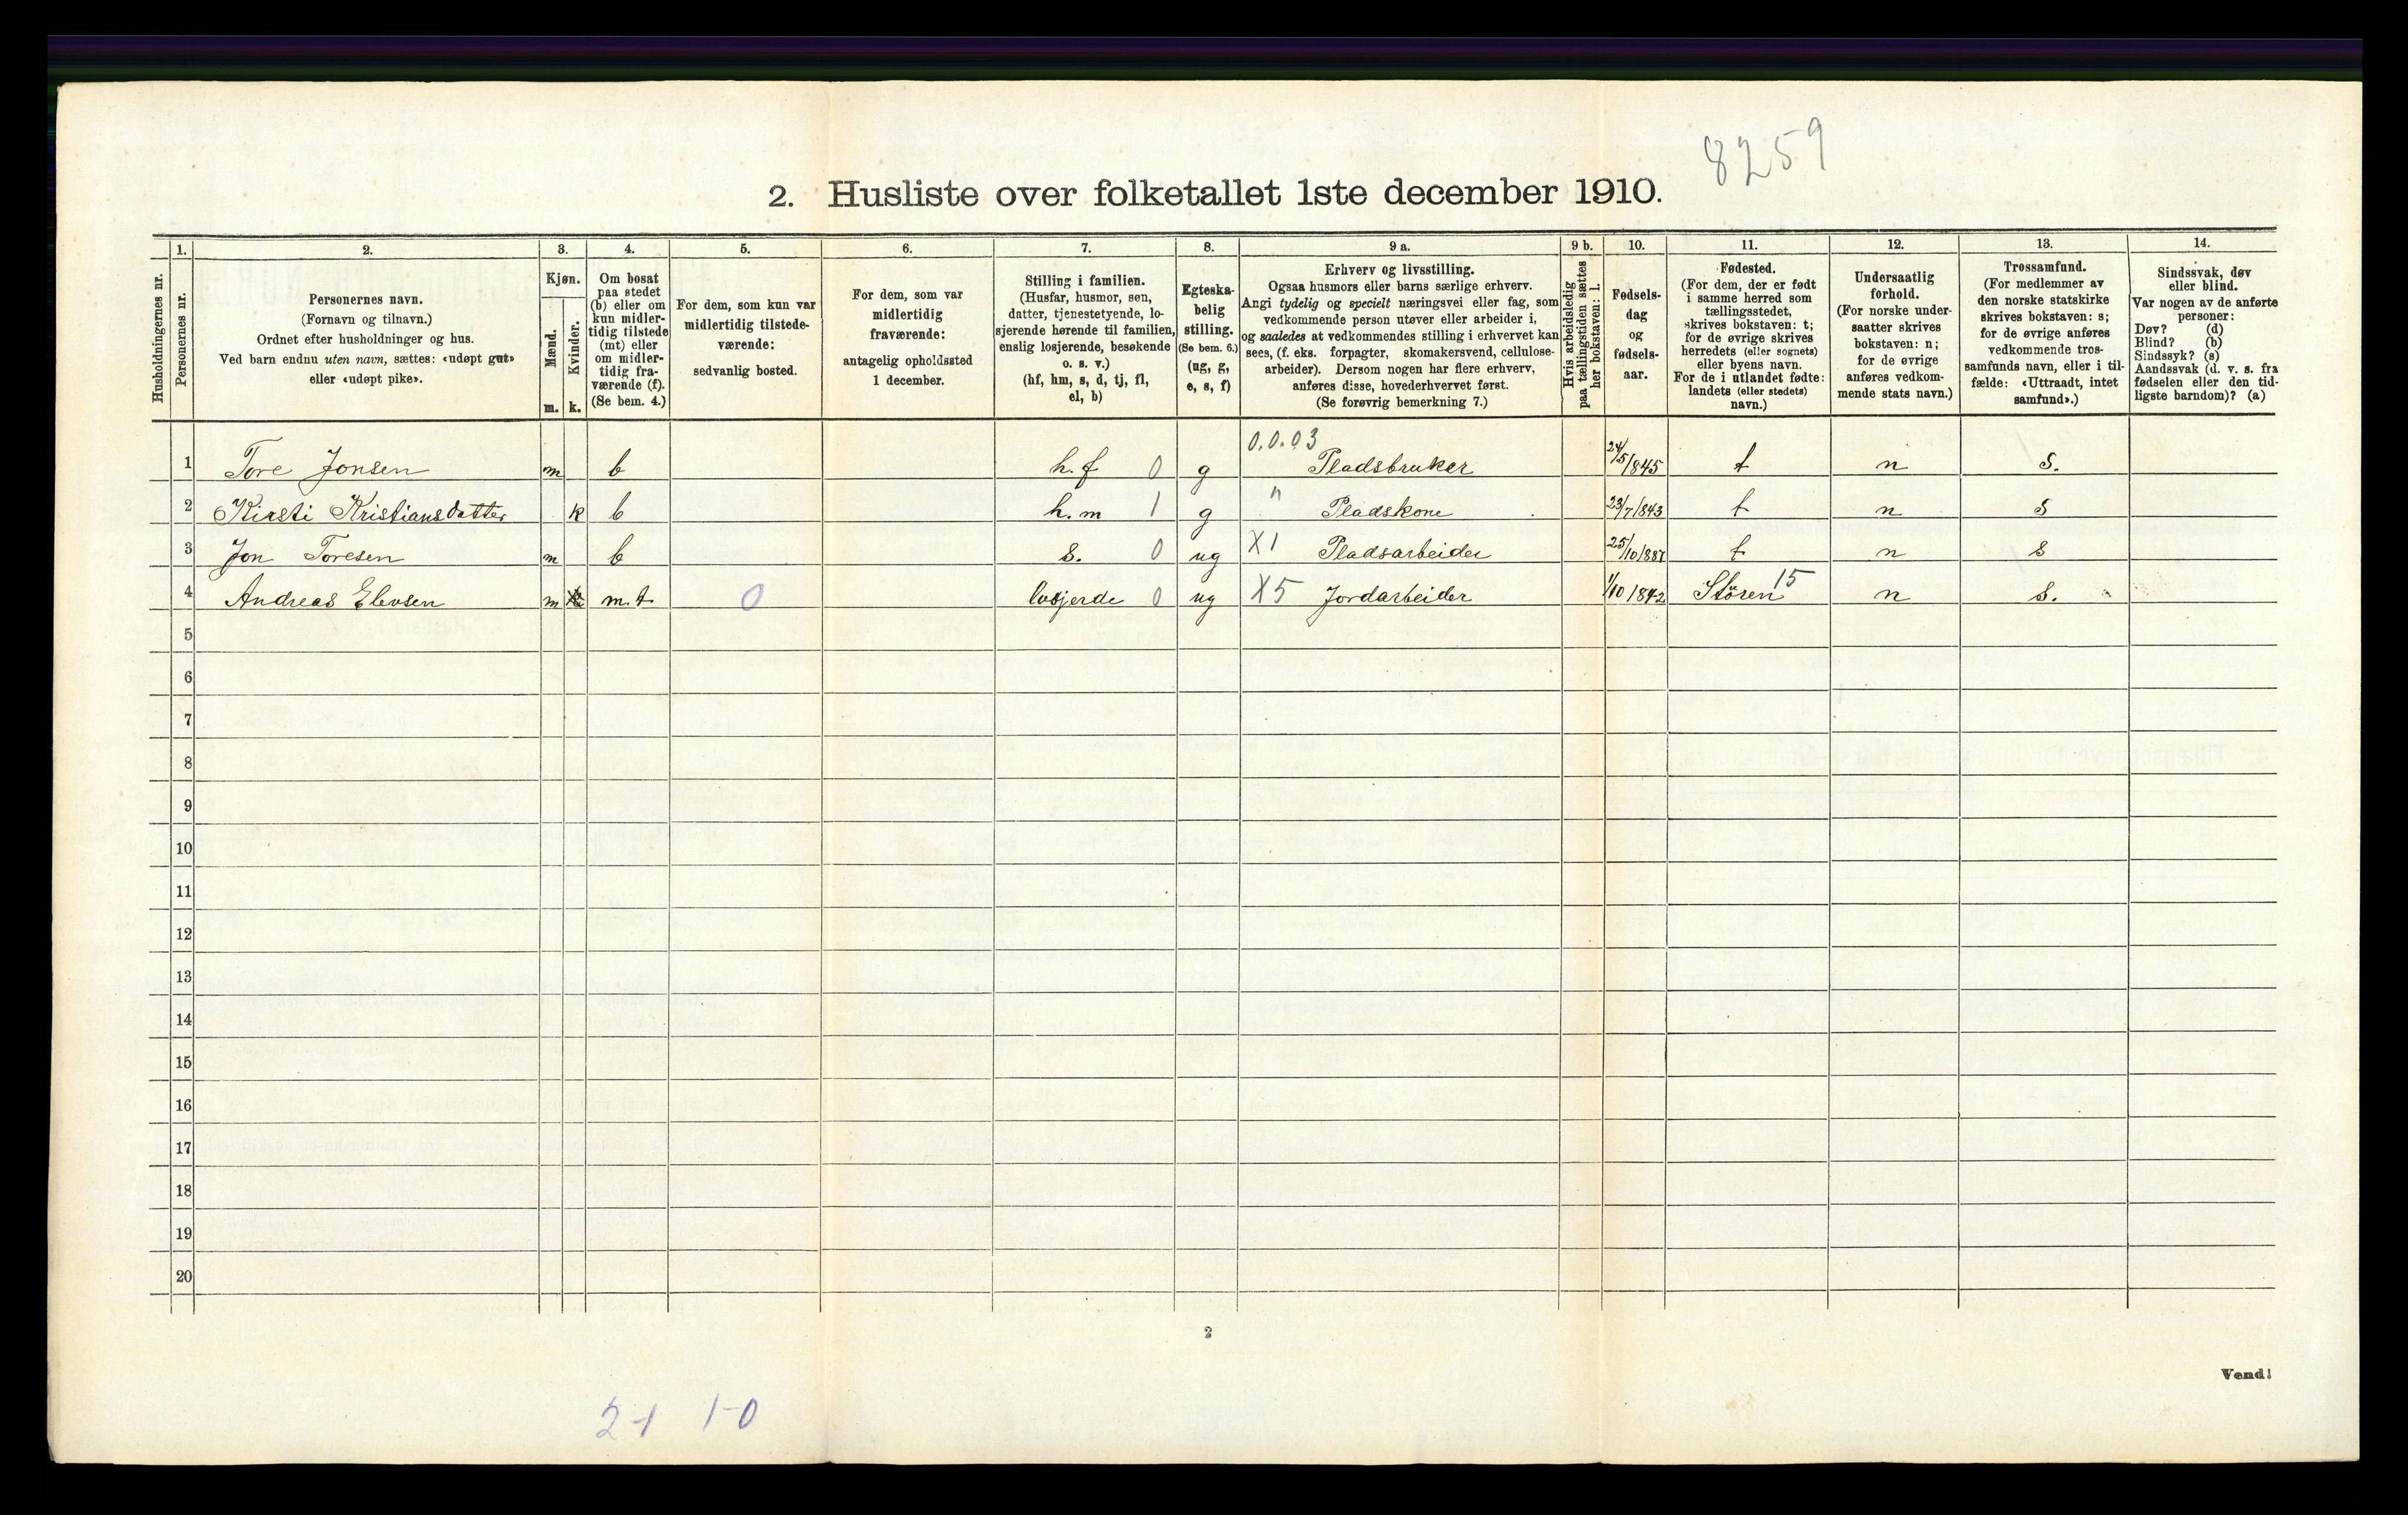 8259
2. Husliste over folketallet 1ste december 1910.
Husholdningernes nr.
1.
Personernes nr.
2.
Personernes navn.
(Fornavn og tilnavn.)
Ordnet efter husholdninger og hus.
Ved barn endnu uten navn, sættes: «udøpt gut»
eller «udøpt pike».
3.
Kjøn.
Mænd.
Kvinder.
m. k.
4.
Om bosat
paa stedet
(b) eller om
kun midler-
tidig tilstede
(mt) eller
om midler-
tidig fra-
værende (f).
(Se bem. 4.)
5.
For dem, som kun var
midlertidig tilstede-
værende:
sedvanlig bosted.
6.
For dem, som var
midlertidig
fraværende:
antagelig opholdssted
1 december.
7.
Stilling i familien.
(Husfar, husmor, søn,
datter, tjenestetyende, lo-
sjerende hørende til familien,
enslig losjerende, besøkende
o. s. v.)
(hf, hm, s, d, tj, fl,
el, b)
8.
Egteska-
belig
stilling.
(Se bem. 6.)
(ug, g,
e, s, f)
9 a.
Erhverv og livsstilling.
Ogsaa husmors eller barns særlige erhverv.
Angi tydelig og specielt næringsvei eller fag, som
vedkommende person utøver eller arbeider i,
og saaledes at vedkommendes stilling i erhvervet kan
sees, (f. eks. forpagter, skomakersvend, cellulose-
arbeider). Dersom nogen har flere erhverv,
anføres disse, hovederhvervet først.
(Se forøvrig bemerkning 7.)
9 b.
Hvis arbeidsledig
paa tællingstiden sættes
her bokstaven: l.
10.
Fødsels-
dag
og
fødsels-
aar.
11.
Fødested.
(For dem, der er født
i samme herred som
tællingsstedet,
skrives bokstaven: t;
for de øvrige skrives
herredets (eller sognets)
eller byens navn.
For de i utlandet fødte:
landets (eller stedets)
navn.)
12.
Undersaatlig
forhold.
(For norske under-
saatter skrives
bokstaven: n;
for de øvrige
anføres vedkom-
mende stats navn.)
13.
Trossamfund.
(For medlemmer av
den norske statskirke
skrives bokstaven: s;
for de øvrige anføres
vedkommende tros-
samfunds navn, eller i til-
fælde: «Uttraadt, intet
samfund».)
14.
Sindssvak, døv
eller blind.
Var nogen av de anførte
personer:
Døv? (d)
Blind? (b)
Sindssyk? (s)
Aandssvak (d. v. s. fra
fødselen eller den tid-
ligste barndom)? (a)
0.0.03
1 Tore Jonsen m b h.f 0 g Pladsbruker 24/5/1845 t n s.
2 Kirsti Kristiansdatter k b h.m 1 g " Pladskone 23/7/1843 t n s
3 Jon Toresen m b s. 0 ug X1 Pladsarbeider 25/10/1887 t n s
4 Andreas Elevsen m m.t 0 losjerde 0 ug X5 Jordarbeider 1/10 1842 Stören 15 n s.
5
6
7
8
9
10
11
12
13
14
15
16
17
18
19
20
2
Vend!
2-1 1-0